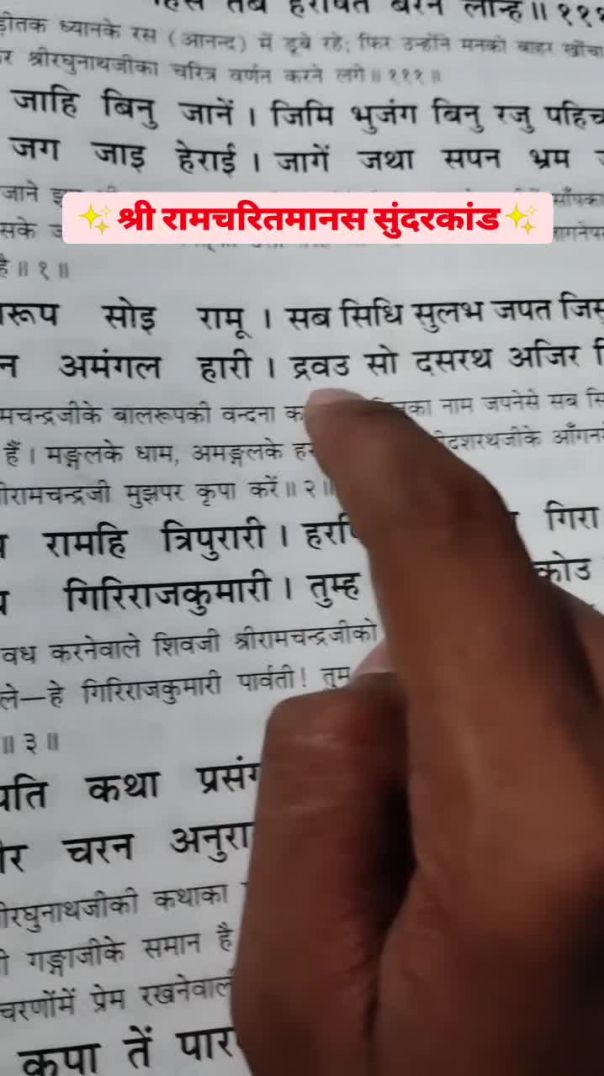 तब हरषित बरनै लीन्ह ॥ १११
ध्यानके रस ( आनन्द ) में डूबे रहे; फिर उन्होंने मनको बाहर खींचा
श्रीरघुनाथजीका चरित्र वर्णन करने लगे ॥ १११ ॥
जाहि बिनु जानें । जिमि भुजंग बिनु रजु पहिच
जग जाइ हेराई । जागें जथा सपन भ्रम
जाने
साँपका
✨श्री रामचरितमानस सुंदरकांड✨
सके
है ॥ १ ॥
रूप सोइ रामू । सब सिधि सुलभ जपत जिस
न अमंगल हारी । द्रवउ सो दसरथ अजिर
मचन्द्रजीके बालरूपकी वन्दना क का नाम जपनेसे सब सि
हैं । मङ्गलके धाम, अमङ्गलके हर दशरथजीके आँगन
रामचन्द्रजी मुझपर कृपा करें ॥ २ ॥
रामहि त्रिपुरारी । हरषि गिरा
गिरिराजकुमारी । तुम्ह कोउ
वध करनेवाले शिवजी श्रीरामचन्द्रजीको
ले—हे गिरिराजकुमारी पार्वती! तुम
॥ ३ ॥
पति कथा प्रसंग
र चरन अनुरा
रघुनाथजीकी कथाका
गङ्गाजीके समान है
चरणोंमें प्रेम रखनेवाल
कृपा तें पार